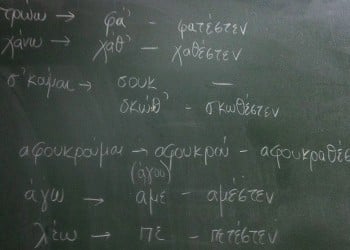 τρώω → φά' - φατέστεν
χάνω → χαθ' - χαθέστεν
σ'κούμαι → σουκ —
σκωθ' - σκωθέστεν
αφουκρούμαι → αφουκρού - αφουκραθέσ
(άγου)
άγω → άμε - αμέστεν
λέω → πε - πετέστεν